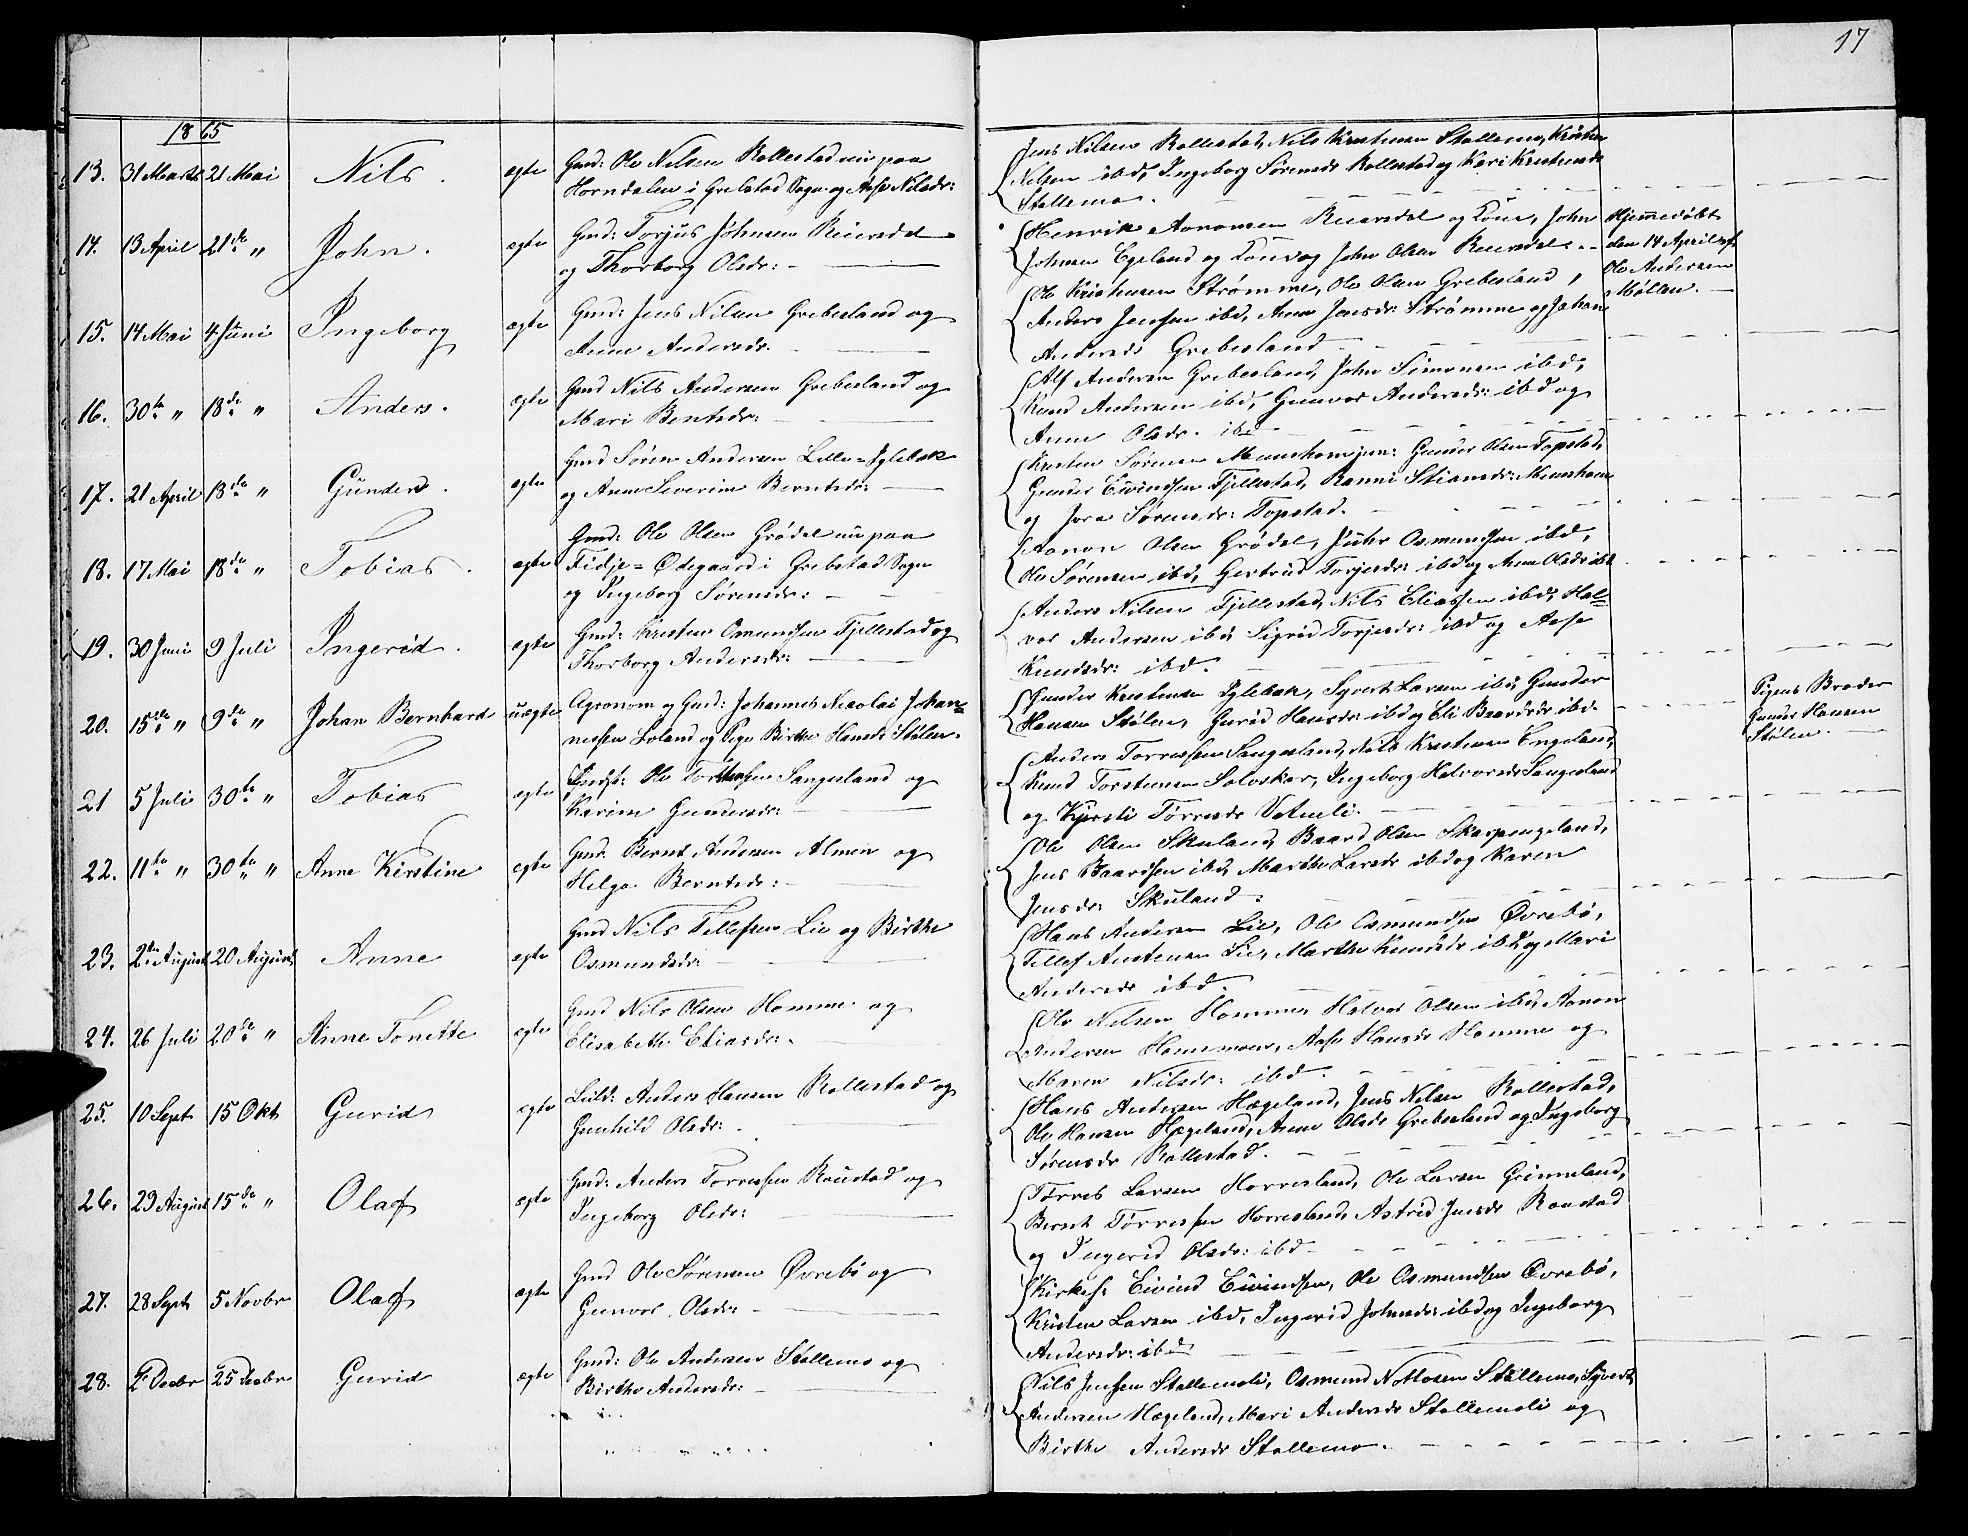 17
1865
13. 31 Marts 21 Mai Nils. ægte Gmd: Ole Nilsen Rollestad nu paa
Horndalen i Grebstad Sogn og Aase Nilsdr:
Jens Nilsen Rollestad, Nils Kristensen Stallemo, Kristen
Nilsen ibd, Ingeborg Sørensdr Rollestad og Kari Kristensdr
Stallemo.
14. 13 April 21de " John. ægte Gmd: Torjus Johnsen Reiersdal
og Thorborg Olsdr:
Henrik Aanonsen Reiersdal og Kone, John
Johnsen Egeland og Kone og John Olsen Reiersdal.
Hjemmedøbt
den 14 April af
Ole Andersen
Møllen.
15. 14 Mai 4 Juni Ingeborg ægte Gmd: Jens Nilsen Grebesland og
Anne Andersdr.
Ole Kristensen Strømme, Ole Olsen Grebesland,
Anders Jensen ibd, Anne Jensdr: Strømme og Johane
Andersdr Grebesland
16. 30te " 18de " Anders. ægte Gmd Nils Andersen Grebesland og
Mari Berntsdr:
Alf Andersen Grebesland, John Simonsen ibd,
Knud Andersen ibd, Gunvor Andersdr: ibd og
Anne Olsdr. ibd
17. 21 April 18de " Gunder. ægte Gmd Søren Andersen Lille=Iglebæk
og Anne Severine Berntsdr:
Kristen Sørensen Mushom jun: Gunder Olsen Topstad,
Gunder Eivindsen Fjellestad, Ranni Stiansdr: Mushom
og Jora Sørensdr: Topstad.
18. 17 Mai 18de " Tobias. ægte Gmd: Ole Olsen Grødal nu paa
Fidje=Ødegaard i Grebstad Sogn
og Ingeborg Sørensdr:
Aanon Olsen Grødal, Osmundsen ibd,
Ole Sørensen ibd, Gertrud Torjesdr: ibd og Anne Olsdr ibd
19. 30 Juni 9 Juli Ingerid. ægte Gmd: Kristen Osmundsen Fjellestad og
Thorborg Andersdr:
Anders Nilsen Fjellestad, Nils Eliassen ibd, Hal=
vor Andersen ibd, Sigrid Torjesdr: ibd og Aase
Knudsdr: ibd.
20. 15de " 9de " Johan Bernhard uægte Agronom og Gmd: Johannes Nicolai Johan=
nessen Loland og Pige Birthe Hansdr Stølen.
Gunder Kristensen Iglebæk, Syvert Larsen ibd, Gunder
Hansen Stølen, Gurid Hansdr: ibd og Eli Baardsdr ibd.
Pigens Broder
Gunder Hansen
Stølen.
21 5 Juli 30te " Tobias ægte Ole Sangesland og
Karine Gundersdr:
Anders Torressen Sangesland, Nils Kristensen Engeland,
Knud Torstensen Solvskar, Ingeborg Halvorsdr Sangesland
og Kjersti Tørresdr Vatneli.
22. 11te " 30te " Anne Kirstine ægte Gmd. Bernt Andersen Almen og
Helga Berntsdr:
Ole Olsen Skuland, Baard Olsen Skarpengeland,
Jens Baardsen ibd, Marthe Larsdr ibd og Karen
Jensdr: Skuland.
23. 2den August 20 August Anne ægte Gmd Nils Tellefsen Lie og Birthe
Osmundsdr:
Hans Andersen Lie, Ole Osmundsen Øvrebø,
Tellef Austensen Lie, Marthe Knudsdr ibd og Mari
Andersdr ibd.
24. 26 Juli 20de " Anne Tonette ægte Gmd Nils Olsen Homme og
Elisabeth Eliasdr.
Ole Nilsen Homme, Halvor Olsen ibd, Aanon
Andersen Hommemoen, Aase Hansdr Homme og
Maren Nilsdr: ibd.
25. 10 Sept 15 Okt Gurid ægte Anders Hansen Rollestad og
Gunhild Olsdr:
Hans Andersen Hægeland, Jens Nilsen Rollestad,
Ole Hansen Hægeland, Anne Olsdr Grebesland og Ingeborg
Sørensdr Rollestad.
26. 29 August 15de " Olaf ægte Gmd: Anders Torressen Raustad og
Ingeborg Olsdr:
Tørres Larsen Horresland, Ole Larsen Grimeland,
Bernt Tørressen Horresland, Astrid Jensdr Raustad
og Ingerid Olsdr: ibd
27. 28 Sept 5 Novbr Olaf ægte Gmd Ole Sørensen Øvrebø og
Gunvor Olsdr:
Kirkes: Eivind Eivindsen, Ole Osmundsen Øvrebø,
Kristen Larsen ibd, Ingerid Johnsdr: ibd og Ingeborg
Andersdr: ibd
28. 2 Decbr 25 Decbr Gurid ægte Gmd: Ole Andersen Stallemo og
Birthe Andersdr:
Nils Jensen Stallemoli, Osmund Stallemo, Syvert
Andersen Hægeland, Mari Andersdr Stallemoli og
Birthe Andersdr Stallemo.